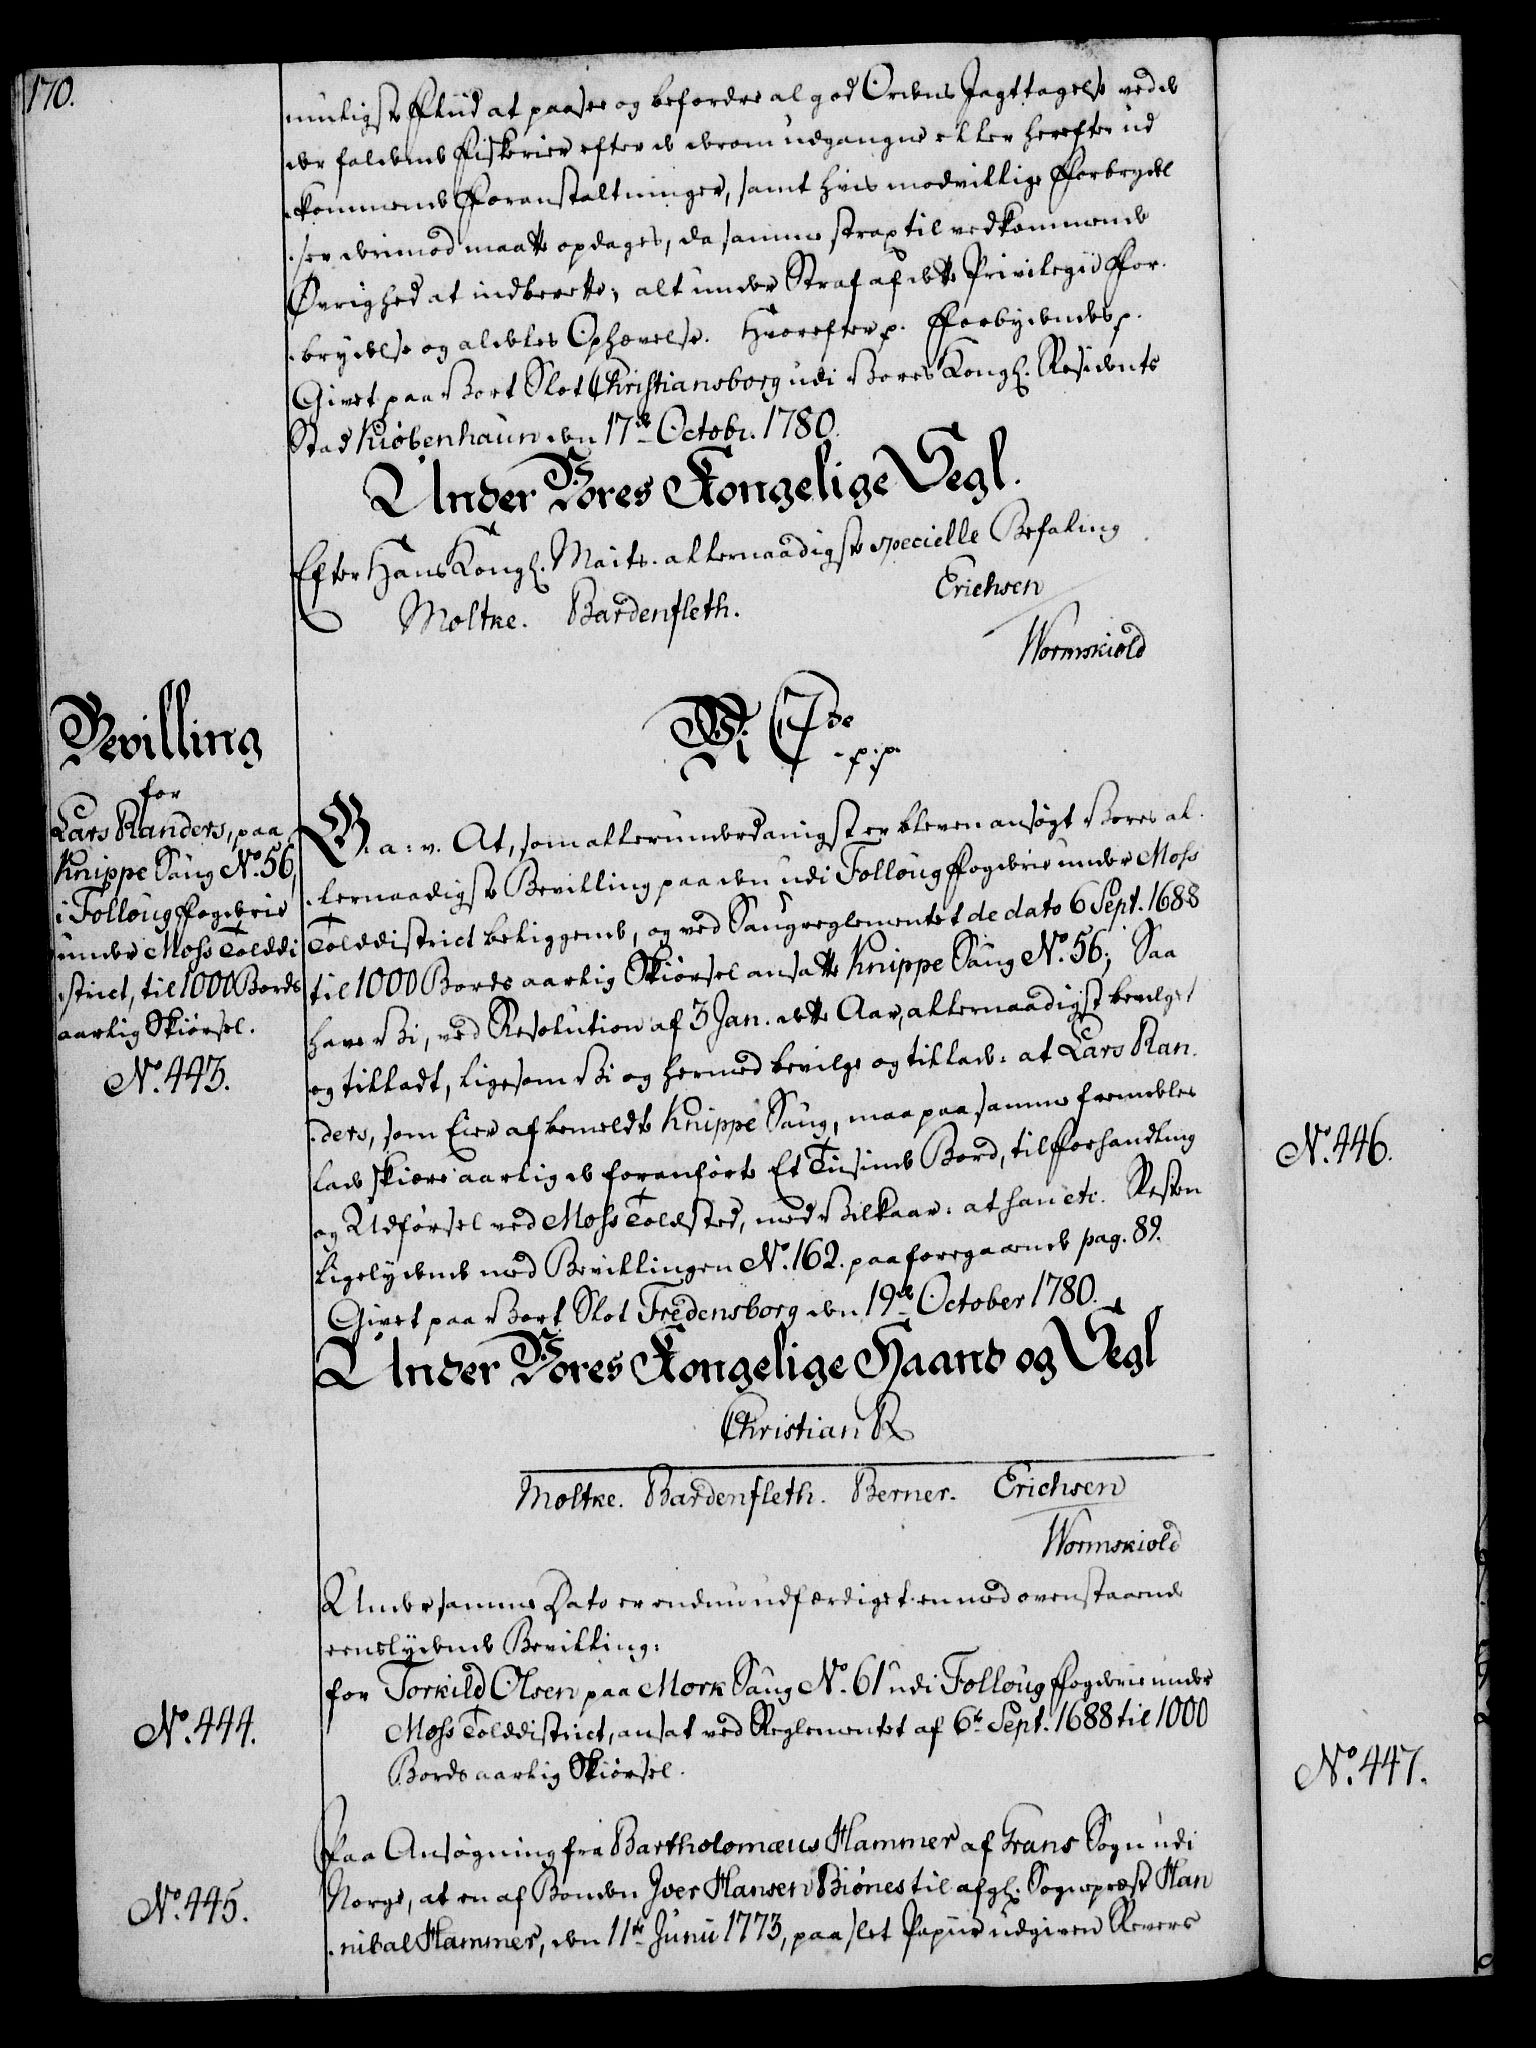 170.
muligste Fliid at paasee og befordre al god Ordens Jagttagelse ved de
der faldende Fiskerier efter de derom udgangne eller herefter ud
kommende Foranstaltninger, samt hvis modvillige Forbrydel
ser derimod maatte opdages, da samme strax til vedkommende
Øvrighed at indberette; alt under Straf af dette Privilegii For-
brydelse og aldeles Ophævelse. Hvorefter p. Forbydendes p.
Givet paa Vort Slot Christiansborg udi Vores Kongl. Residents
Stad Kiøbenhaun den 17de Octobr. 1780.
Under Vores Kongelige Segl.
Efter Hans Kongl. Maits. allernaadigste specielle Befaling
Moltke. Bardenfleth. Erichsen
Wormskiold
Bevilling
for
Lars Randers, paa
Knippe Saug No. 56,
i Folloug Fogderie
under Moss Tolddi
strict, til 1000 Bords
aarlig Skiørsel.
No. 443.
Vi C7de
p. p.
G. a: v. At, som allerunderdanigst er bleven ansøgt Vores al-
lernaadigste Bevilling paa den udi Folloug Fogderie under Moss
Tolddistrict beliggende, og ved Saugreglementet de dato 6 Sept. 1688
til 1000 Bords aarlig Skiørsel ansatte Knippe Saug No. 56; Saa
have Vi, ved Resolution af 3 Jan. dette Aar, allernaadigst bevilget
og tilladt, ligesom Vi og hermed bevilge og tillade: at Lars Ran-
ders, som Eier af bemeldte Knippe Saug, maa paa samme fremdeles
lade skiære aarlig de foranførte Et Tusinde Bord, til Forhandling
og Udførsel ved Moss Toldsted, med Vilkaar: at han etc. Resten
ligelydende med Bevillingen No. 162. paa foregaaende pag. 89.
Givet paa Vort Slot Fredensborg den 19de October 1780.
Under Vores Kongelige Haand og Segl
Christian R
Moltke. Bardenfleth. Berner. Erichsen
Wormskiold
Under samme Dato er endnu udfærdiget en med ovenstaaende
eenslydende Bevilling:
for Torkild Olsen paa Mork Saug No. 61 udi Folloug Fogderie under
Moss Tolddistrict, ansat ved Reglementet af 6te Sept. 1688 til 1000
Bords aarlig Skiørsel.
No. 444.
Paa Ansøgning fra Bartholomæus Hammer af Grans Sogn udi
Norge, at en af Bonden Iver Hansen Biønes til afgl. Sognepræst Han
nibal Hammer, den 11te Junii 1773, paa slet Papiir udgiven Revers
No. 445.
No. 446.
No. 447.